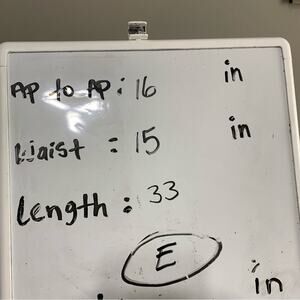 AP to AP: 16 in
Waist : 15 in
Length : 33
E
in